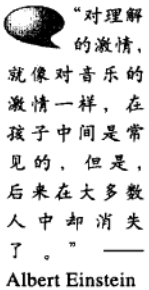 “对理解
的激情，
就像对音乐的
激情一样，在
孩子中间是常
见的，但是，
后来在大多数
人中却消失
了。” ——
Albert Einstein